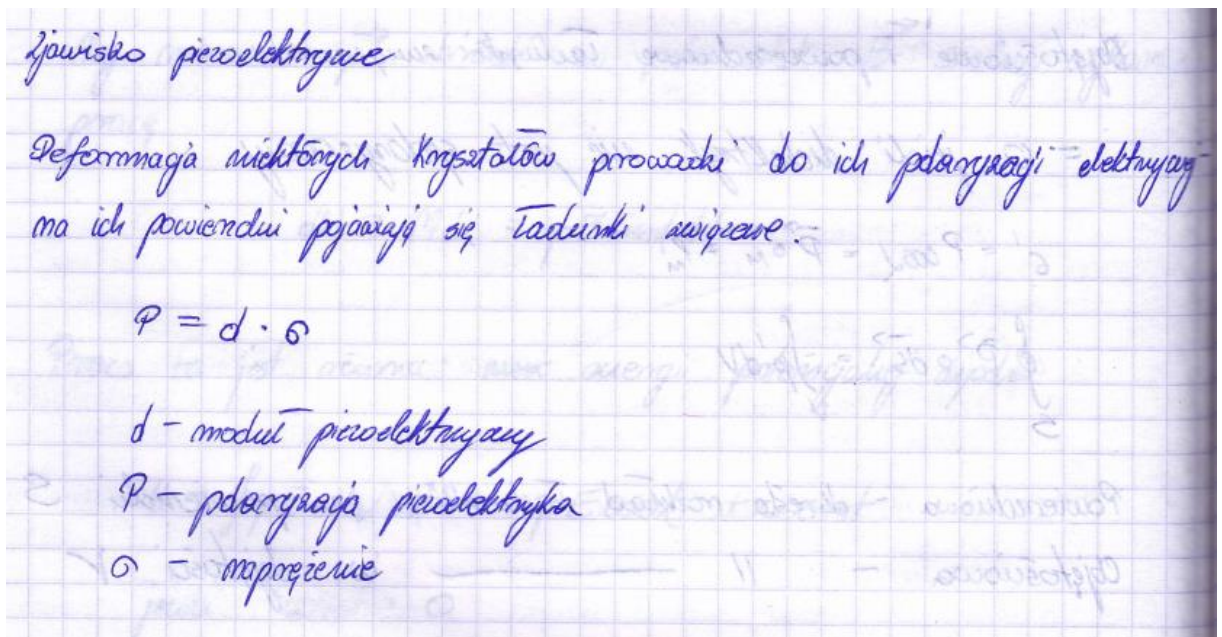 Zjawisko piezoelektryczne
Deformacja niektórych kryształów prowadzi do ich polaryzacji elektrycznej
na ich powierzchni pojawiają się ładunki związane.
P = d · σ
d - moduł piezoelektryczny
P - polaryzacja piezoelektryka
σ - naprężenie